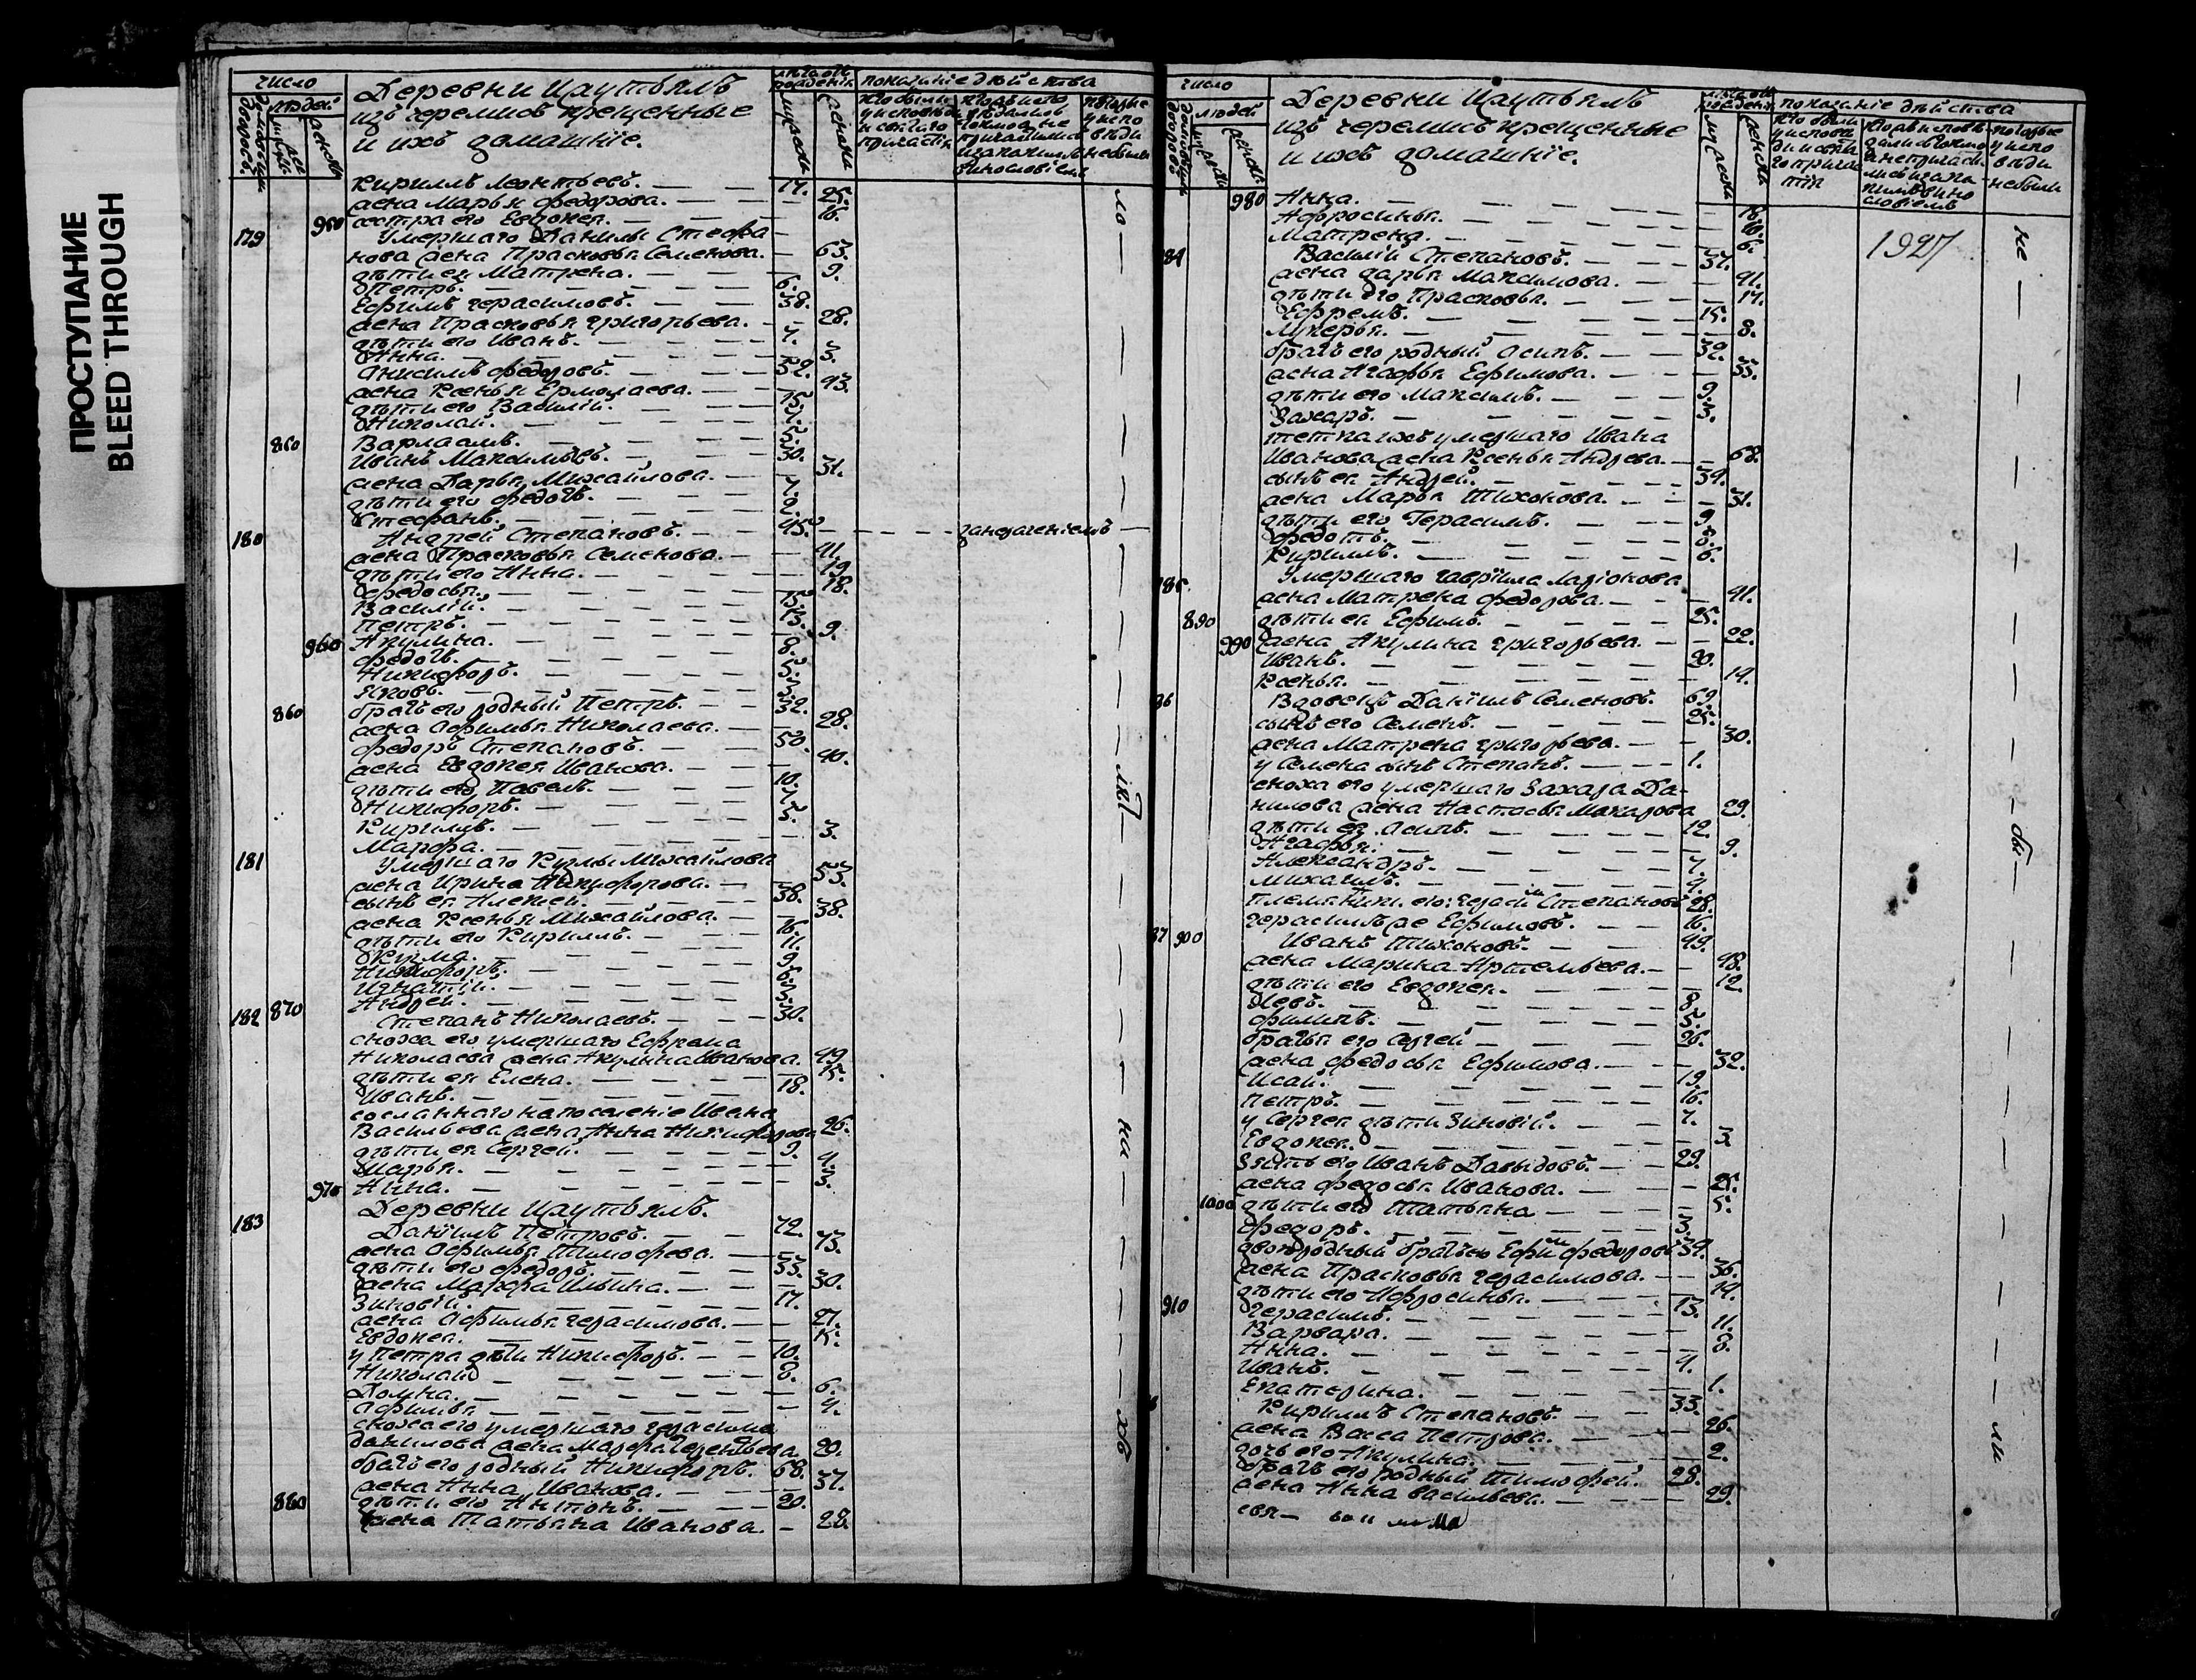 ПРОСТУПАНИЕ
BLEED THROUGH
число
людей
Деревни Цаутьялъ
изъ черемисъ крещенные
и ихъ домашніе.
показаніе дѣйства
Кириллъ Леонтьевъ. 17.
жена Марья Федорова. 25.
950 сестра его Евдокея. 16.
179 Умершаго Данилы Стефа
нова жена Прасковья Семенова. 63.
дѣти ея Матрена. 9.
Петръ. 6.
Ефимъ Герасимовъ. 38.
жена Прасковья Григорьева. 28.
дѣти его Иванъ. 7.
Анна. 3.
Онисимъ Федоровъ. 52.
жена Ксенья Ермолаева. 43.
дѣти его Василій. 15.
Николай. 7.
850 Варлаамъ. 5.
Иванъ Максимовъ. 30.
жена Дарья Михайлова. 31.
дѣти его Федотъ. 7.
Стефанъ. 2.
180 Андрей Степановъ. 45.
жена Прасковья Семенова. 41.
дѣти его Анна. 19.
Федосья. 18.
Василій. 15.
Петръ. 13.
960 Акулина. 9.
Федотъ. 8.
Никифоръ. 5.
Яковъ. 3.
860 братъ его родный Петръ. 32.
жена Офимья Николаева. 28.
Федоръ Степановъ. 50.
жена Евдокея Иванова. 40.
дѣти его Павелъ. 10.
Никифоръ. 7.
Кириллъ. 5.
Марфа. 3.
181 Умершаго Кузмы Михайлова
жена Ирина Никифорова. 53.
сынъ ея Алексей. 38.
жена Ксенья Михайлова. 38.
дѣти его Кириллъ. 16.
Кузма. 11.
Никифоръ. 9.
Игнатій. 6.
Андрей. 3.
182 870 Степанъ Николаевъ. 30.
сноха его умершаго Ефрема
Николаева жена Акулина Иванова. 49.
дѣти ея Елена. 15.
Иванъ. 18.
сосланнаго на поселеніе Ивана
Васильева жена Анна Никифорова 26.
дѣти ея Сергей. 9.
Марья. 4.
970 Анна. 3.
Деревни Цаутьялъ.
183 Даніилъ Петровъ. 72.
жена Офимья Тимофеева. 73.
дѣти его Федоръ. 33.
жена Марфа Ильина. 30.
Зиновій. 17.
жена Офимья Герасимова. 21.
Евдокея. 15.
у Петра дѣти Никифоръ. 10.
Николай 8.
Домна. 6.
Офимья. 4.
сноха его умершаго Герасима
Данилова жена Марфа Терентьева. 29.
братъ его родный Никифоръ. 68.
жена Анна Иванова. 57.
880 дѣти его Антонъ. 20.
жена Татьяна Иванова. 28.
число
людей
Деревни Цаутьялъ
изъ черемисъ крещенные
и ихъ домашніе.
показаніе дѣйства
980 Анна.
Афросинья. 10.
Матрена. 6.
1927
84 Василій Степановъ. 37.
жена Дарья Максимова. 41.
дѣти его Прасковья. 17.
Ефремъ. 15.
Лукерья. 8.
братъ его родный Осипъ. 32.
жена Агафья Ефимова. 33.
дѣти его Максимъ. 9.
Захаръ. 3.
тетка ихъ умершаго Ивана
Иванова жена Ксенья Андрева. 68.
сынъ ея Андрей. 39.
жена Марья Тихонова. 31.
дѣти его Герасимъ. 9
Федотъ. 8.
Кириллъ. 6.
85 Умершаго Гаврила Ларіонова
жена Матрена Федорова. 41.
890 дѣти ея Ефимъ. 25.
990 жена Акулина Григорьева. 22.
Иванъ. 20.
Ксенья. 14.
86 Вдовецъ Даніилъ Семеновъ. 69.
сынъ его Семенъ. 25.
жена Матрена Григорьева. 30.
у Семена сынъ Степанъ. 1.
сноха его умершаго Захара Да-
нилова жена Настасья Макарова 29.
дѣти ея Осипъ. 12.
Агафья. 9.
Александръ. 7.
Михаилъ. 4.
Степановъ 28.
Ефимовъ. 16.
87 900 Иванъ Тихоновъ. 49.
жена Марина Артемьева. 48.
дѣти его Евдокея. 12.
Левъ. 8.
Филипъ. 5.
братья его Сергей 26.
жена Федосья Ефимова. 32.
Исай. 19.
Петръ. 16.
у Сергея дѣти Зиновій. 7.
Евдокея. 3
Зять его Иванъ Давыдовъ. 29.
жена Федосья Иванова. 25.
1000 дѣти его Татьяна 5.
Федоръ. 3.
двоюродный братъ его Ефимъ Федоровъ 39.
жена Прасковья Герасимова. 36.
дѣти его Афросинья. 14.
910 Герасимъ. 13.
Варвара. 11.
Анна. 8.
Иванъ. 4.
Екатерина. 1.
Кириллъ Степановъ. 33.
жена Васса Петрова. 26.
дочь его Акулина. 2.
братъ его родный Тимофей. 28.
жена Анна Васильева. 29.